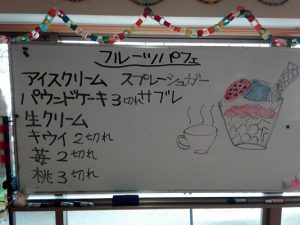 フルーツパフェ
アイスクリーム スプレーシュガー
パウンドケーキ3切れ サブレ
生クリーム
キウイ2切れ
苺2切れ
桃3切れ